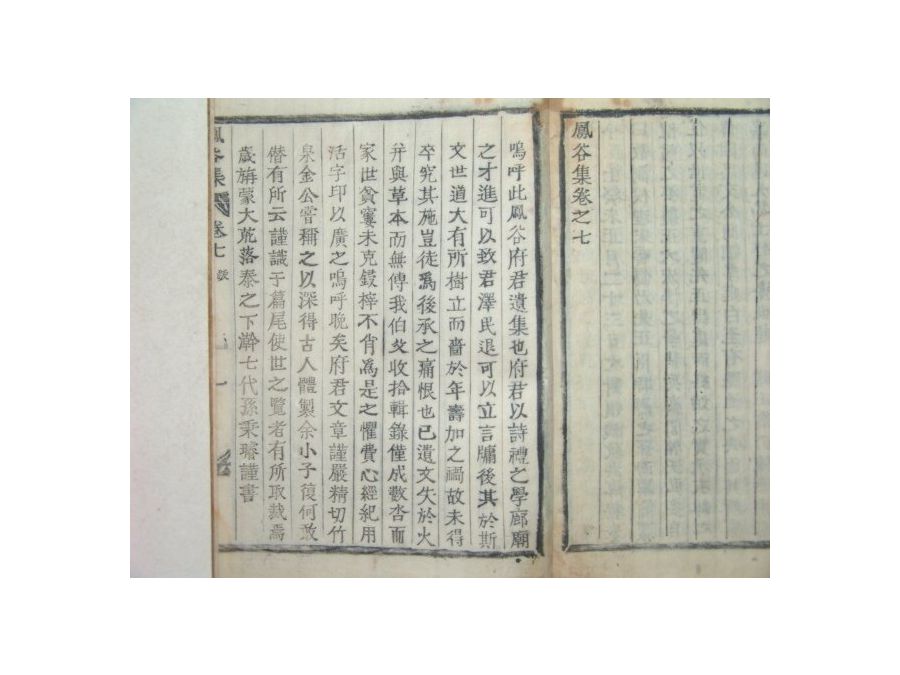 鳳谷集卷之七
嗚呼此鳳谷府君遺集也府君以詩禮之學廊廟
之才進可以致君澤民退可以立言牖後其於斯
文世道大有所樹立而嗇於年壽加之禍故未得
卒究其施豈徒爲後承之痛恨也已遺文失於火
幷與草本而無傳我伯父收拾輯錄僅成數沓而
家世貧寠未克鋟梓不肖爲是之懼費心經紀用
活字印以廣之嗚呼晚矣府君文章謹嚴精切竹
泉金公嘗稱之以深得古人體製余小子復何敢
僭有所云謹識于篇尾使世之覽者有所取裁焉
歲旃蒙大荒落泰之下澣七代孫秉璿謹書
鳳谷集 卷七 跋 一